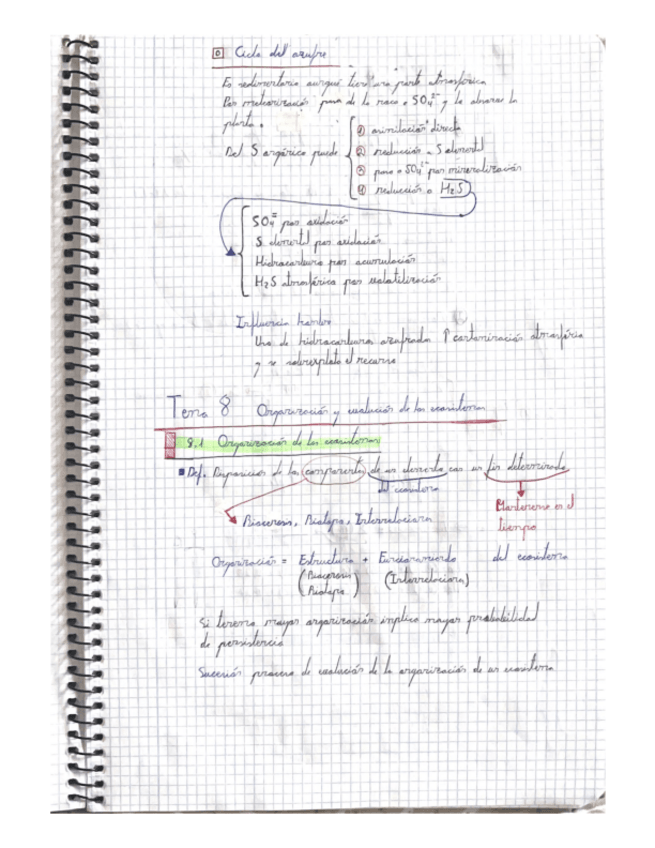 Ciclo del azufre
Es sedimentario aunque tiene una parte atmosférica
Por meteorización pasa de la roca a SO₄²⁻ y la absorve la
planta.
Del S orgánico puede
① asimilación directa
② reducción a S elemental
③ paso a SO₄²⁻ por mineralización
④ reducción a H₂S
SO₄⁼ por oxidación
S elemental por oxidación
Hidrocarburos por acumulación
H₂S atmosférico por volatilización
Influencia hombre
Uso de hidrocarburos azufrados ↑ contaminación atmosférica
y se sobreexplota el recurso
Tema 8 Organización y evolución de los ecosistemas
8.1 Organización de los ecosistemas
Def. Disposición de los componentes de un elemento con un fin determinado
del ecosistema
Mantenerse en el
tiempo
Biocenosis, Biotopo, Interrelaciones
Organización = Estructura + Funcionamiento del ecosistema
(Biocenosis
Biotopo)
(Interrelaciones)
Si tenemos mayor organización implica mayor probabilidad
de persistencia
Sucesión proceso de evolución de la organización de un ecosistema